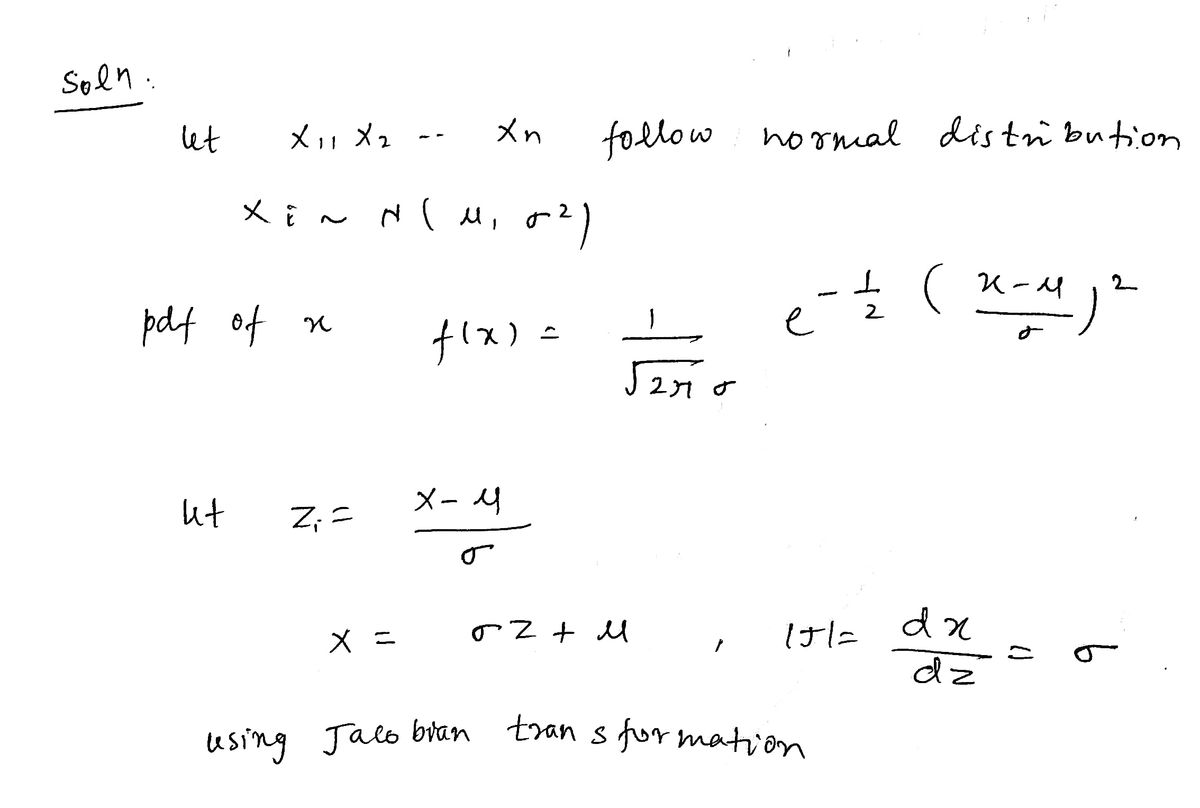 Soln :
let X₁, X₂ -- Xn follow normal distribution
Xi ~ N ( μ, σ²)
pdf of x f(x) = 1/(√2π σ) e^(-1/2 ( (x-μ)/σ )²)
let Zᵢ = (X-μ)/σ
X = σZ + μ , |J| = dx/dz = σ
using Jacobian transformation